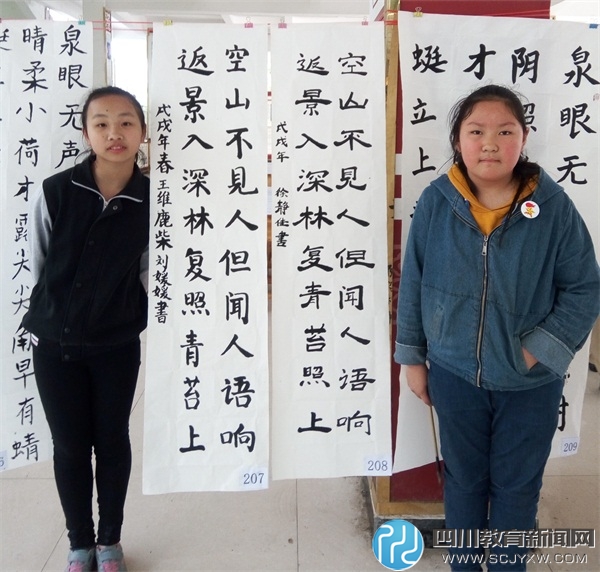 泉眼无声
晴柔小荷才露尖尖角早有蜻
蜓
空山不見人但闻人语响
返景入深林复照青苔上
戊戌年春 王维鹿柴 刘媛媛書
207
空山不見人但闻人语响
返景入深林复青苔照上
戊戌年 徐静書
208
泉眼无
阴照
才
蜓立上
209
四川教育新闻网
WWW.SCJYXW.COM